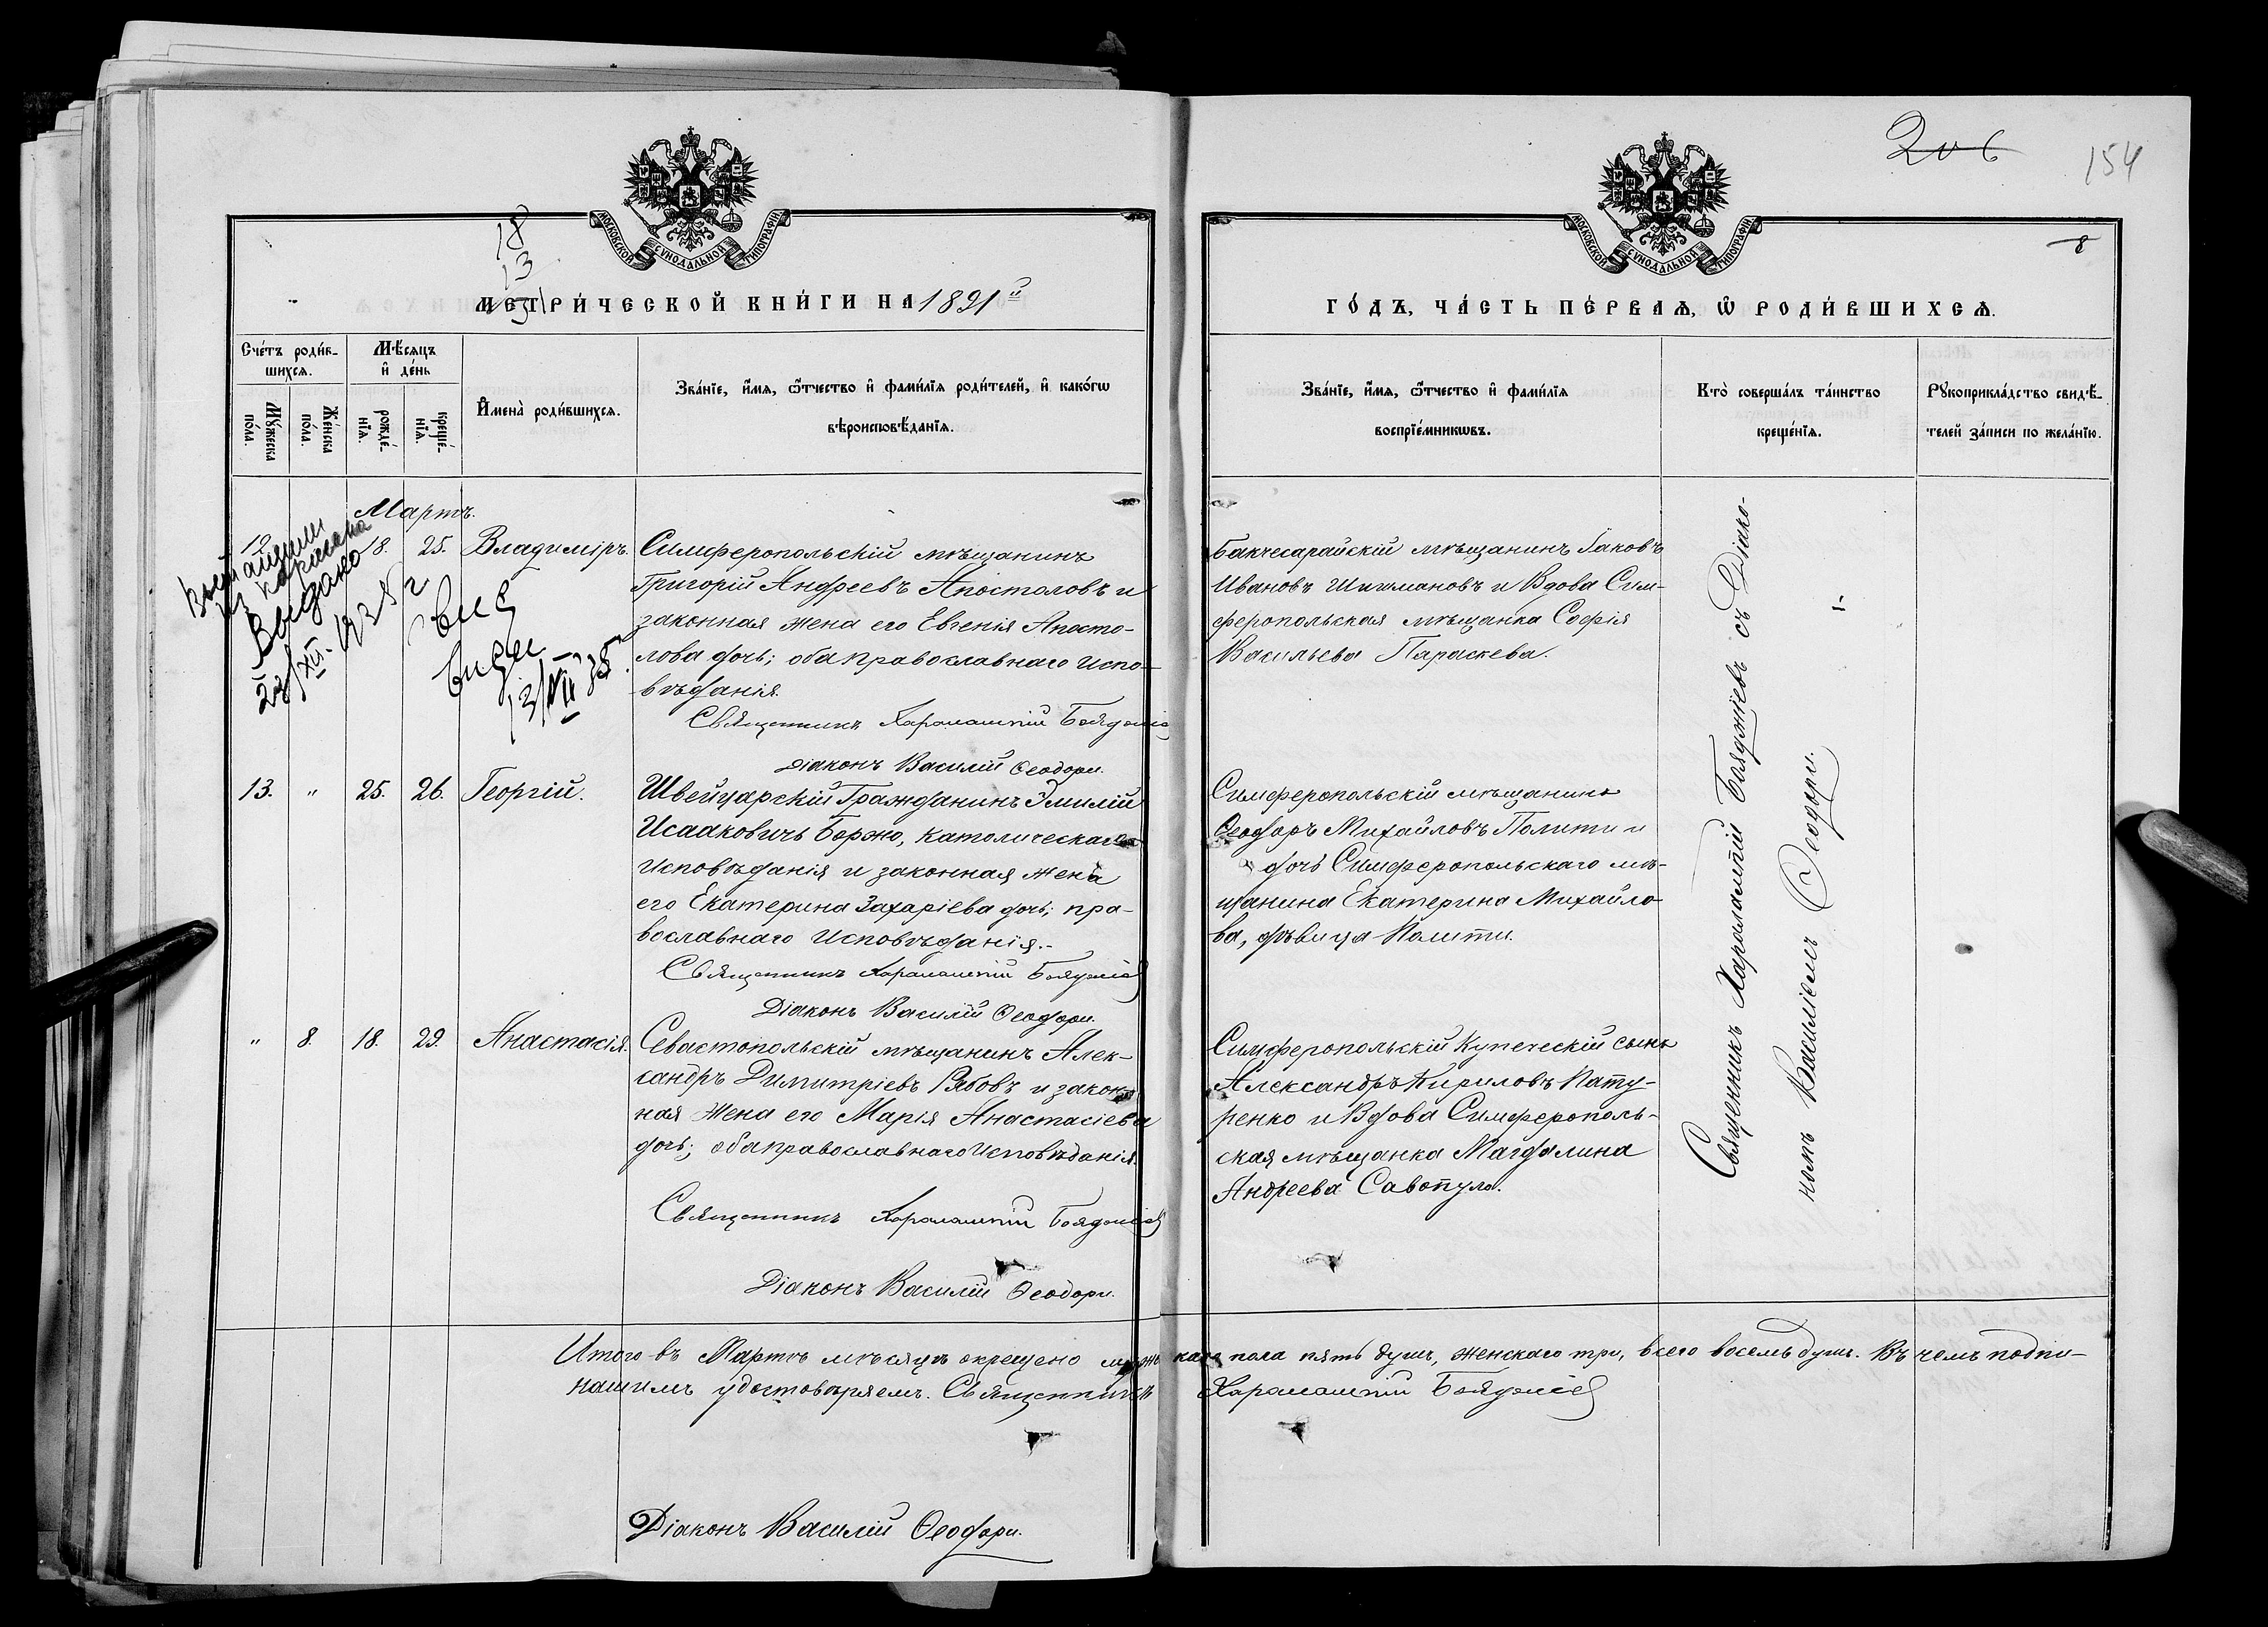 206
154
8
18
13
МОСКОВСКОЙ СѴНОДАЛЬНОЙ ТИПОГРАФІИ
МОСКОВСКОЙ СѴНОДАЛЬНОЙ ТИПОГРАФІИ
МЕТРИ́ЧЕСКОЙ КНИ́ГИ НА 1891й
ГО́ДЪ, ЧА́СТЬ ПЕ́РВАѦ, Ѽ РОДИ́ВШИХСѦ.
Счéтъ роди́в-
шихсѧ.
Мꙋ́жеска
по́ла.
Же́нска
по́ла.
Мѣ́сѧцъ
и҆ де́нь
рожде́-
нїѧ.
креще́-
нїѧ.
И҆мена̀ роди́вшихсѧ.
Зва́нїе, и҆́мѧ, ѻ҆́тчество и҆ фами́лїѧ роди́телей, и҆ како́гѡ
вѣроисповѣ́данїѧ.
Зва́нїе, и҆́мѧ, ѻ҆́тчество и҆ фами́лїѧ
воспрїе́мникѡвъ.
Кто̀ соверша́лъ та́инство
креще́нїѧ.
Рꙋкоприкла́дство свидѣ́-
телей за́писи по жела́нїю.
Мартъ.
12
18. 25. Владиміръ.
Симферопольскій мѣщанинъ
Григорій Андреевъ Апостоловъ и
законная жена его Евгенія Апосто-
лова дочь; оба православнаго испо-
вѣданія.
Священникъ Харалампій Бояджіев
Діаконъ Василій Ѳеодори.
Бакчесарайскій мѣщанинъ Іаковъ
Ивановъ Шишмановъ и Вдова Сим-
феропольская мѣщанка Софія
Васильева Параскева.
Выдано
22/XII-1938 г
13/VII 38
13. " 25. 26. Георгій.
Швейцарскій Гражданинъ Эмилій
Исааковичъ Боржо, католическаго
исповѣданія и законная жена
его Екатерина Захаріева дочь; пра-
вославнаго исповѣданія.-
Священникъ Харалампій Бояджіев
Діаконъ Василій Ѳеодори.
Симферопольскій мѣщанинъ
Ѳеодоръ Михайловъ Полити и
дочь Симферопольскаго мѣ-
щанина Екатерина Михайло-
ва, дѣвица Полити.
" 8. 18. 29. Анастасія.
Севастопольскій мѣщанинъ Алек-
сандръ Димитріевъ Рябовъ и закон-
ная жена его Марія Анастасіева
дочь; оба православнаго исповѣданія.
Священникъ Харалампій Бояджіев
Діаконъ Василій Ѳеодори.
Симферопольскій купеческій сынъ
Александръ Кириловъ Пату-
ренко и Вдова Симферополь-
ская мѣщанка Магдалина
Андреева Савопуло.
Священникъ Харалампій Бояджіевъ съ Діако-
номъ Василіемъ Ѳеодори.
Итого въ Мартѣ мѣсяцѣ окрещено мужескаго пола пять душъ, женскаго три, всего восемь душъ. Въ чемъ подпи-
нашимъ удостовѣряемъ. Священникъ Харалампій Бояджіев
Діаконъ Василій Ѳеодори.